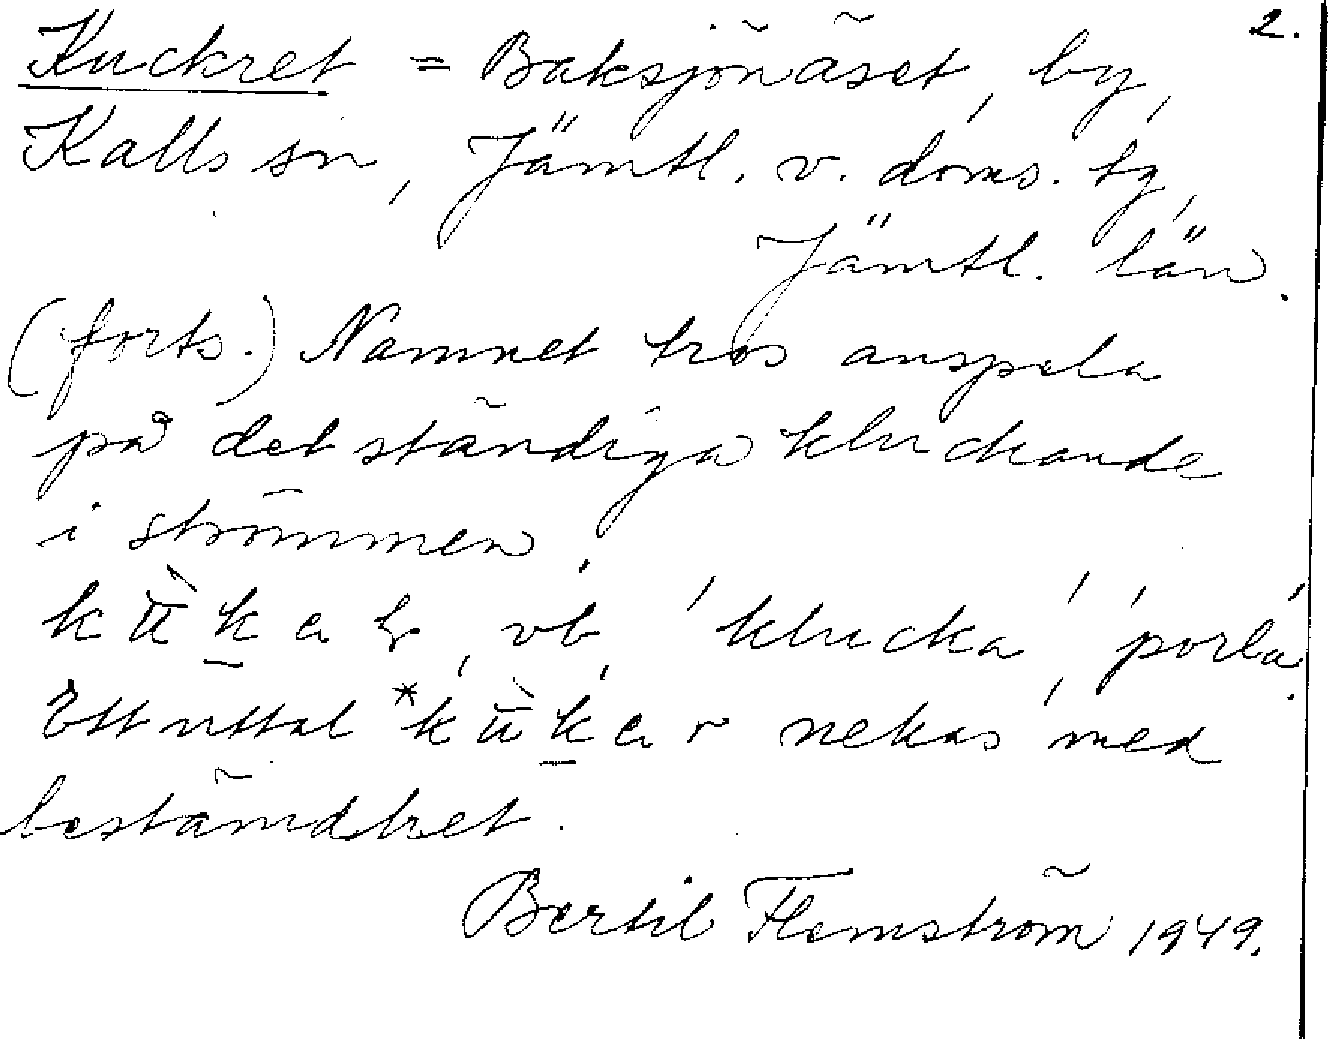 2.
Kuckret = Baksjönäset, by,
Kalls sn, Jämtl. v. doms. tg,
Jämtl. län.
(forts.) Namnet tros anspela
på det ständiga kluckande
i strömmen.
vb, 'klucka', 'porla'.
Ett uttal nekas med
bestämdhet.
Bertil Flemström 1949.